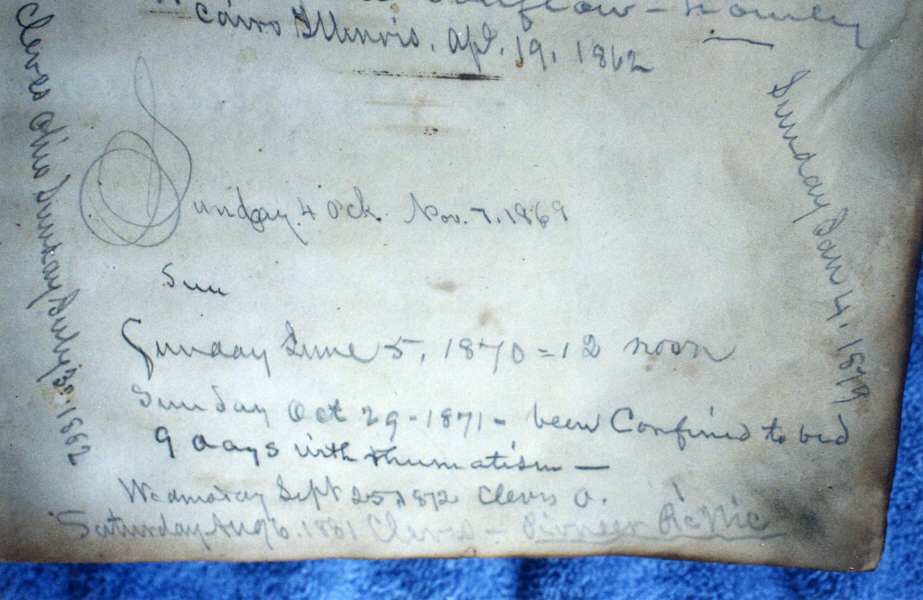 Cairo Illinois. Apl. 19, 1862
Sunday 4 Ock Nov. 7. 1869
Sun
Sunday June 5, 1870 = 12 noon
Sunday Oct 29 - 1871 - been Confined to bed
9 days with rhumatism —
Wednesday Sept 25 1872 Cleves O.
Saturday Aug 6. 1881 Cleves - Pioneer Pic Nic
Cleves Ohio Sunday July 1882
Sunday Jan 4. 1879